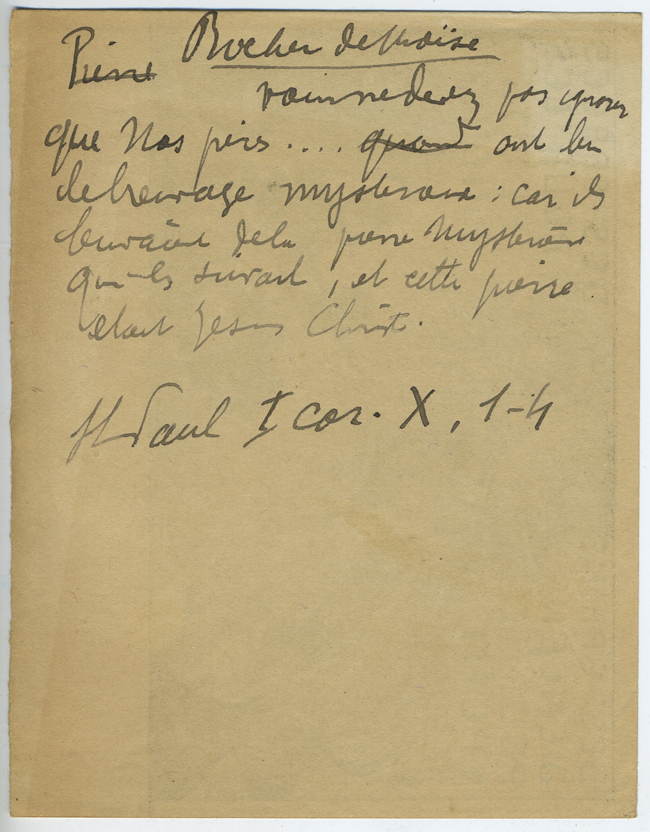 Pierre Rocher de Moïse
vous ne devez pas ignorer
que Nos pères .... quand ont bu
le breuvage mystérieux : car ils
buvaient de la pierre Mystérieuse
qui les suivait, et cette pierre
était Jesus Christ.
St Paul I cor. X, 1-4